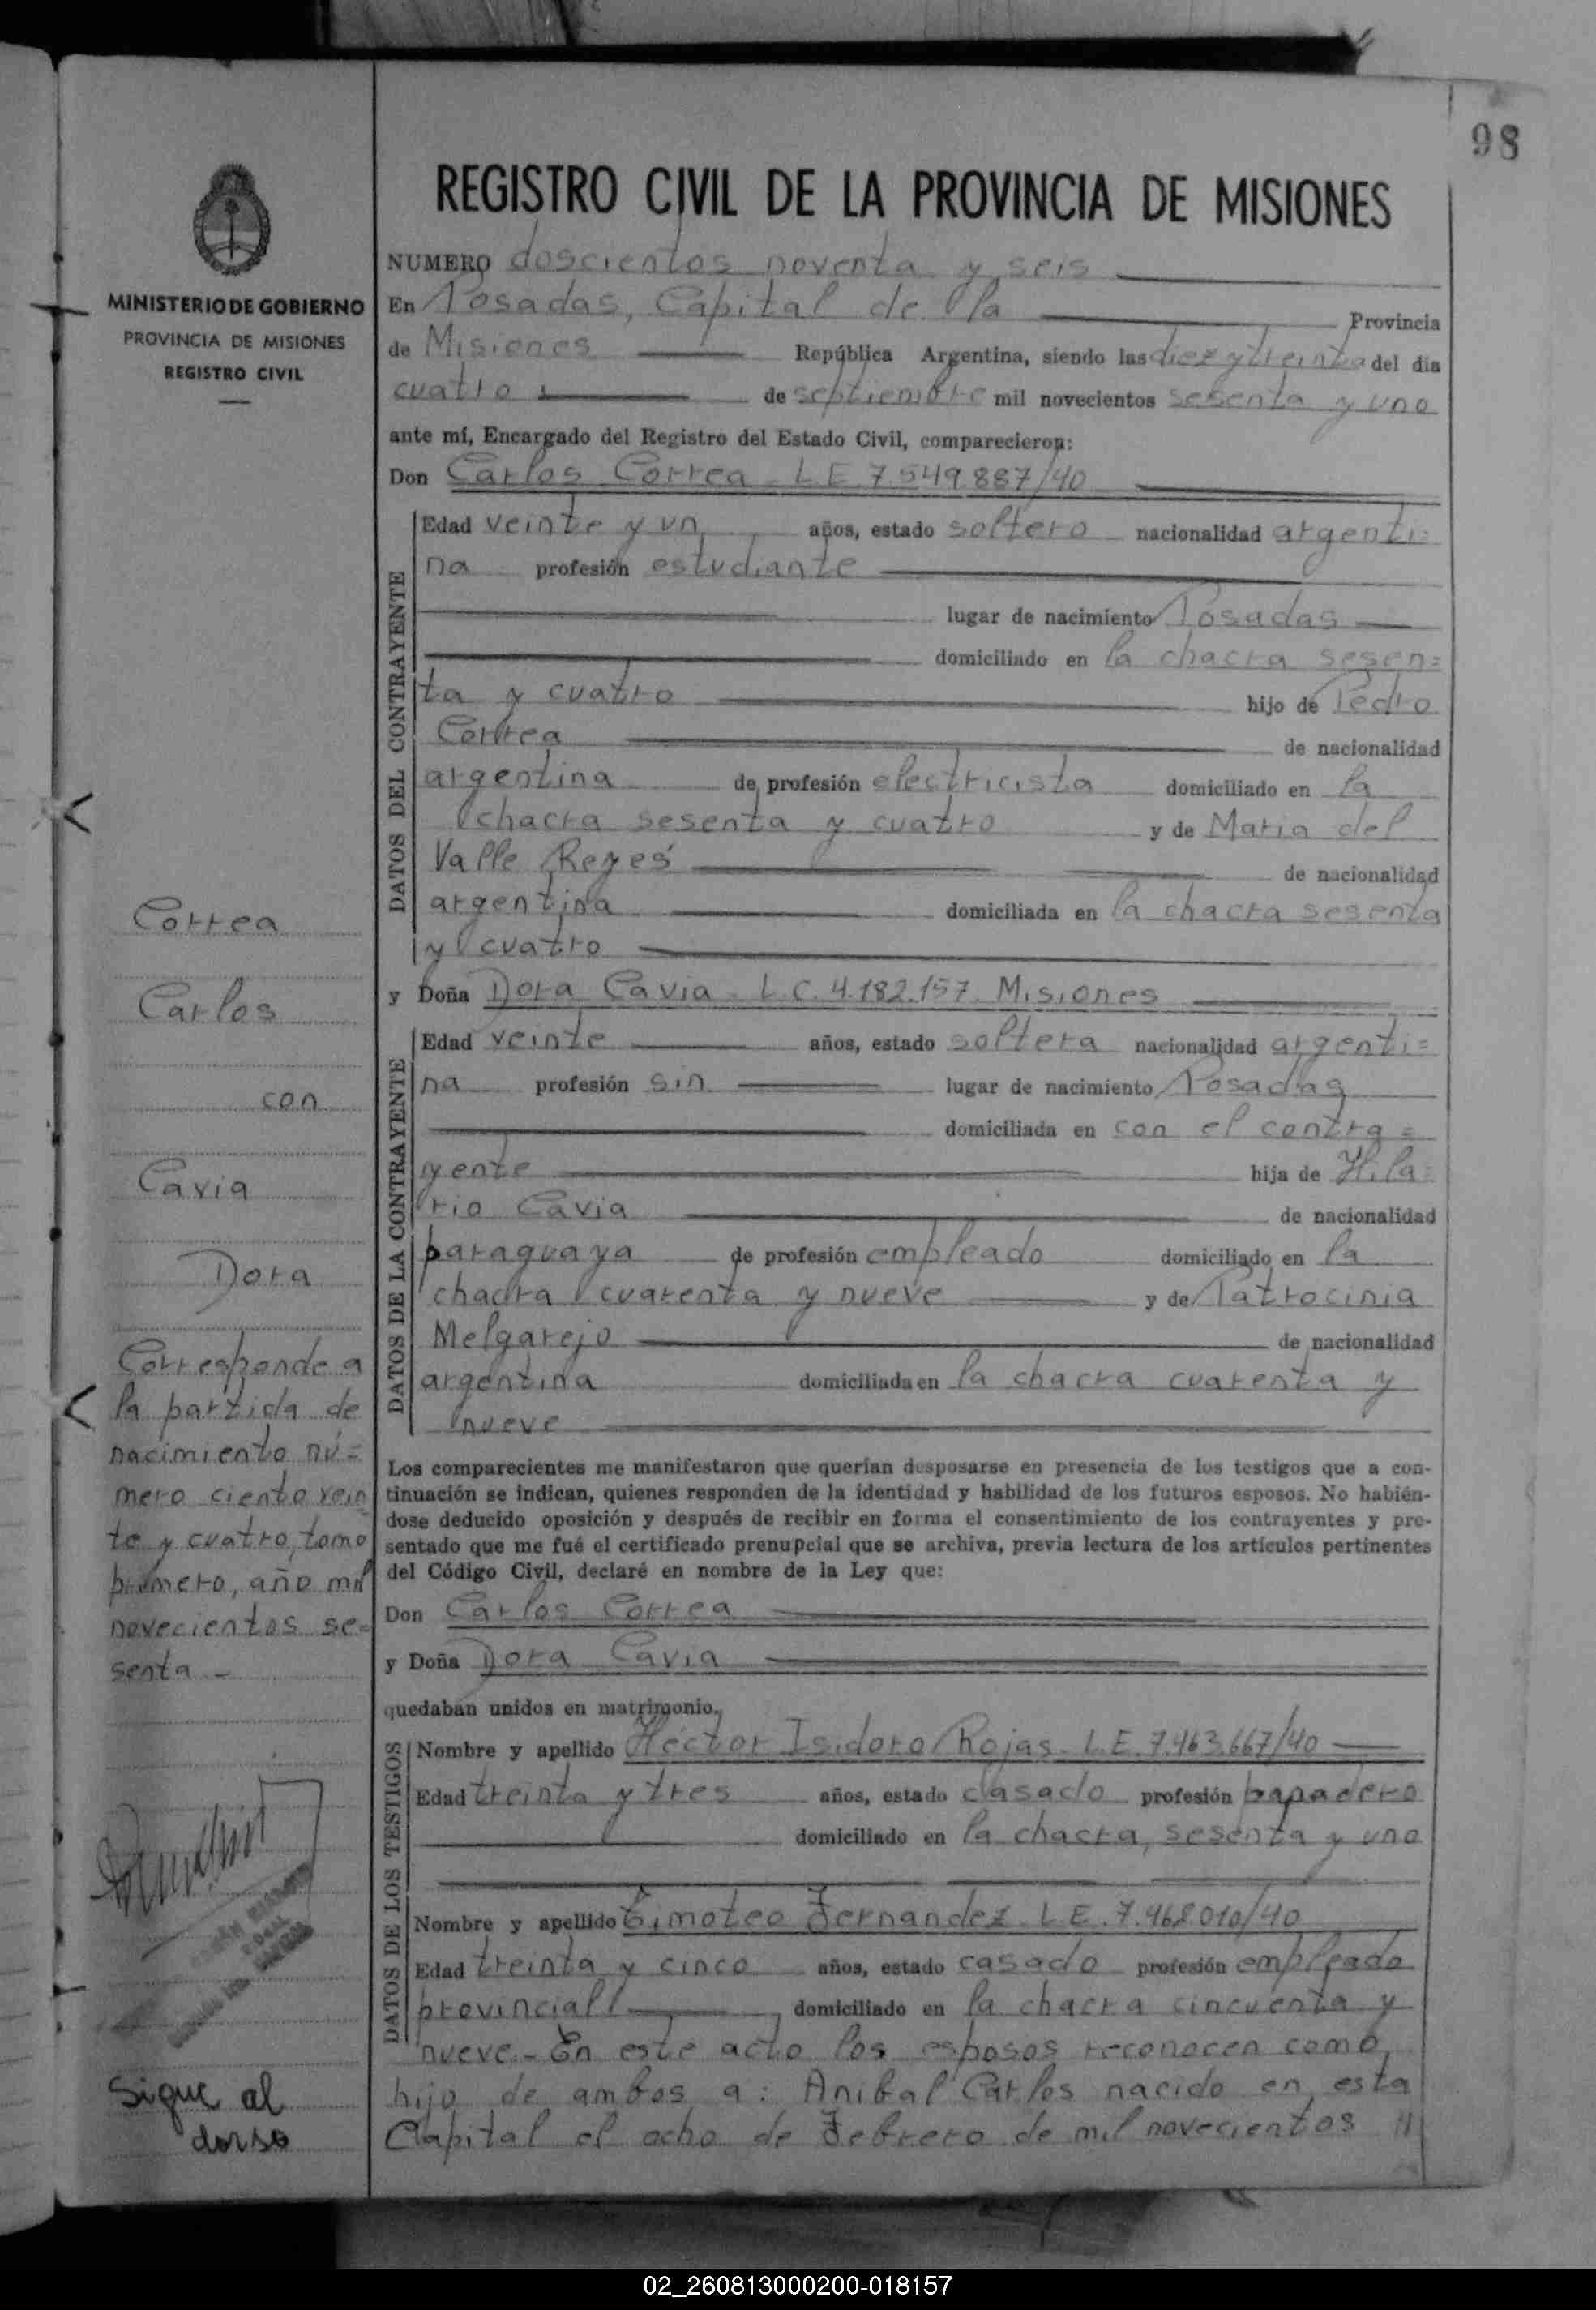 98
REGISTRO CIVIL DE LA PROVINCIA DE MISIONES
MINISTERIO DE GOBIERNO
PROVINCIA DE MISIONES
REGISTRO CIVIL
NUMERO doscientos noventa y seis
En Posadas, Capital de la Provincia
de Misiones República Argentina, siendo las diez y treinta del día
cuatro de septiembre mil novecientos sesenta y uno
ante mí, Encargado del Registro del Estado Civil, comparecieron:
Don Carlos Correa - L E 7.549.887/40
DATOS DEL CONTRAYENTE
Edad veinte y un años, estado soltero nacionalidad argenti=
na profesión estudiante
lugar de nacimiento Posadas
domiciliado en la chacra sesen=
ta y cuatro hijo de Pedro
Correa de nacionalidad
argentina de profesión electricista domiciliado en la
chacra sesenta y cuatro y de Maria del
Valle Reyes de nacionalidad
argentina domiciliada en la chacra sesenta
y cuatro
y Doña Dora Cavia - L.C. 4.182.157 Misiones
DATOS DE LA CONTRAYENTE
Edad veinte años, estado soltera nacionalidad argenti=
na profesión sin lugar de nacimiento Posadas
domiciliada en con el contra=
yente hija de Hila=
rio Cavia de nacionalidad
paraguaya de profesión empleado domiciliado en la
chacra cuarenta y nueve y de Patrocinia
Melgarejo de nacionalidad
argentina domiciliada en la chacra cuarenta y
nueve
Los comparecientes me manifestaron que querían desposarse en presencia de los testigos que a con-
tinuación se indican, quienes responden de la identidad y habilidad de los futuros esposos. No habién-
dose deducido oposición y después de recibir en forma el consentimiento de los contrayentes y pre-
sentado que me fué el certificado prenupcial que se archiva, previa lectura de los artículos pertinentes
del Código Civil, declaré en nombre de la Ley que:
Don Carlos Correa
y Doña Dora Cavia
quedaban unidos en matrimonio.
DATOS DE LOS TESTIGOS
Nombre y apellido Héctor Isidoro Rojas - L.E. 7.463.667/40
Edad treinta y tres años, estado casado profesión papadero
domiciliado en la chacra, sesenta y uno
Nombre y apellido Timoteo Fernandez - L E. 7.468.010/40
Edad treinta y cinco años, estado casado profesión empleado
provincial domiciliado en la chacra cincuenta y
nueve - En este acto los esposos reconocen como
hijo de ambos a: Anibal Carlos nacido en esta
Capital el ocho de Febrero de mil novecientos //
Correa
Carlos
con
Cavia
Dora
Corresponde a
la partida de
nacimiento nú=
mero ciento vein
te y cuatro, tomo
primero, año mil
novecientos se=
senta -
Sigue al
dorso
02_260813000200-018157